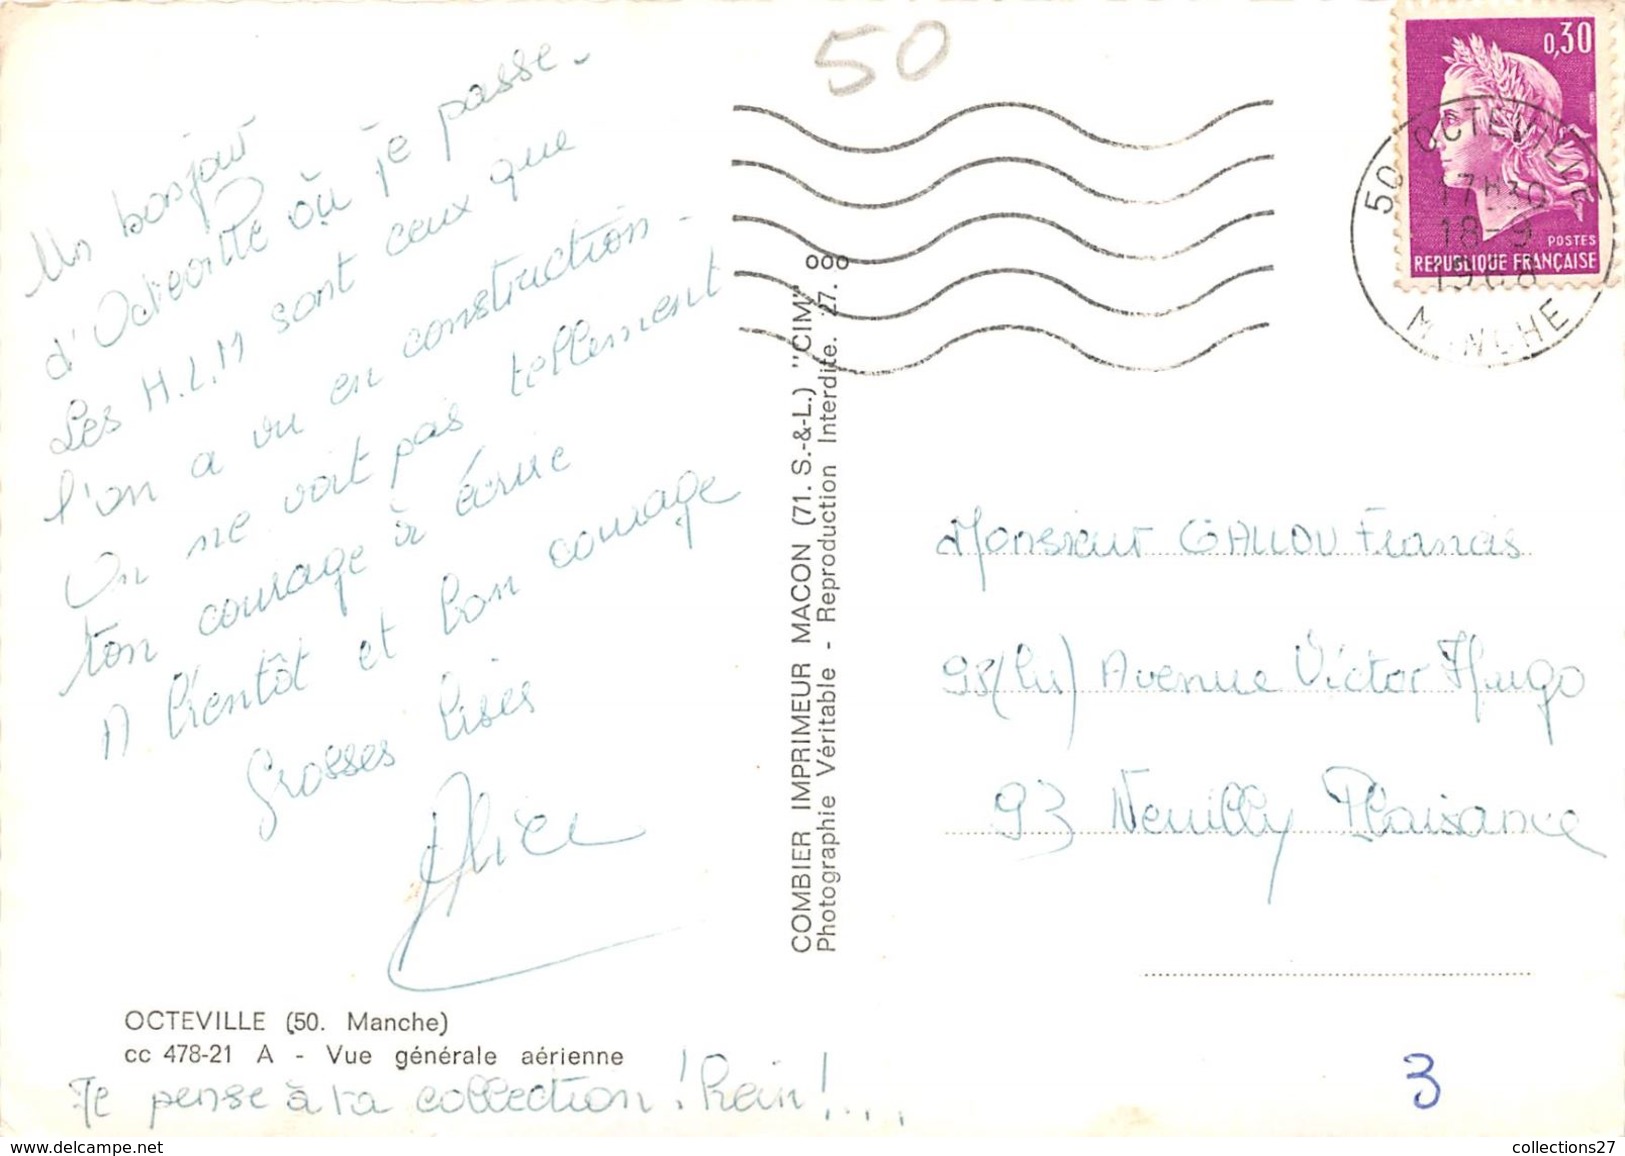 50
Un bonjour
d'Octeville où je passe.
Les H.L.M sont ceux que
l'on a vu en construction.
On ne voit pas tellement
ton courage à écrire
A bientôt et bon courage
Grosses bises
Alice
OCTEVILLE (50. Manche)
cc 478-21 A - Vue générale aérienne
Je pense à ta collection! hein!....
COMBIER IMPRIMEUR MACON (71. S.-&-L.) "CIM"
Photographie Véritable - Reproduction Interdite. 27. 000
0,30
POSTES
REPUBLIQUE FRANÇAISE
50 OCTEVILLE
17H30
18-9
1968
MANCHE
Monsieur GALLOU Francis
93(bis) Avenue Victor Hugo
93 Neuilly Plaisance
3
collections27